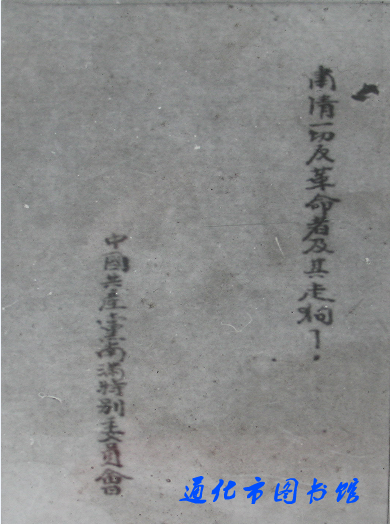 肃清一切反革命者及其走狗！
中國共产党南满特别委員會
通化市图书馆